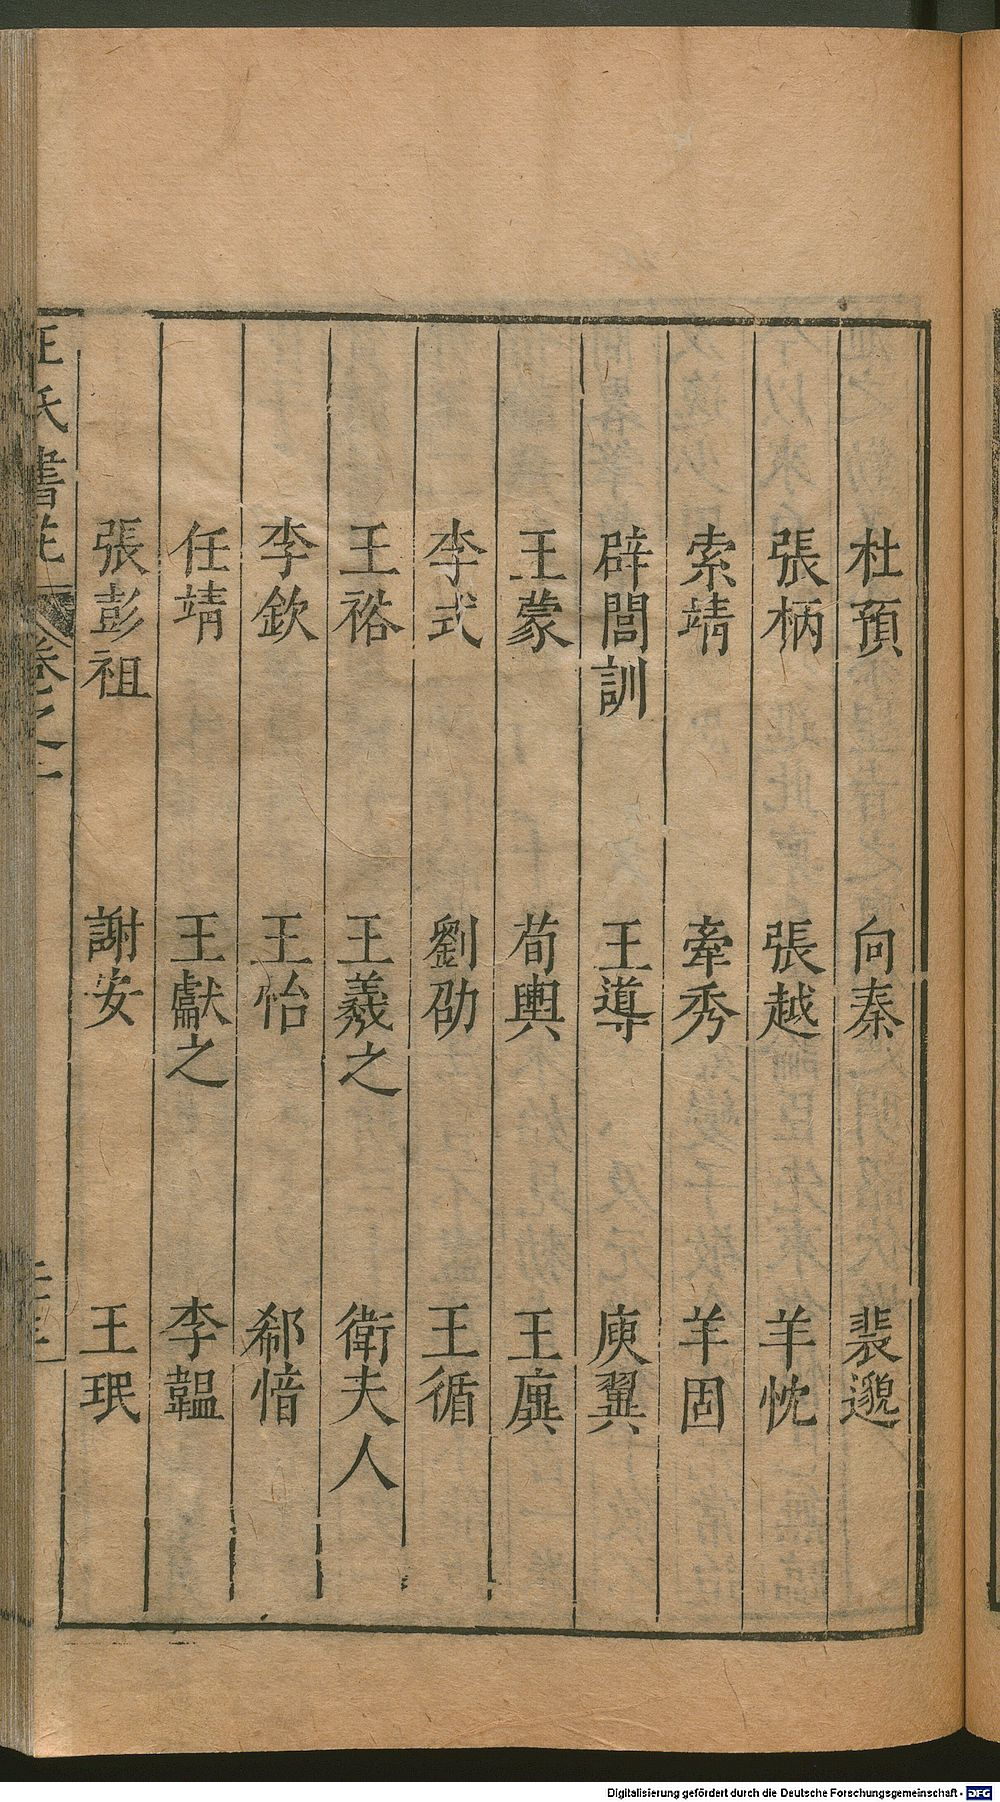 杜預 向秦 裴邈
張柄 張越 羊忱
索靖 牽秀 羊固
辟閭訓 王導 庾翼
王蒙 荀輿 王廙
李式 劉劭 王循
王裕 王羲之 衛夫人
李欽 王怡 郗愔
任靖 王獻之 李韞
張彭祖 謝安 王珉
王氏書苑 卷之一
Digitalisierung gefördert durch die Deutsche Forschungsgemeinschaft - DFG